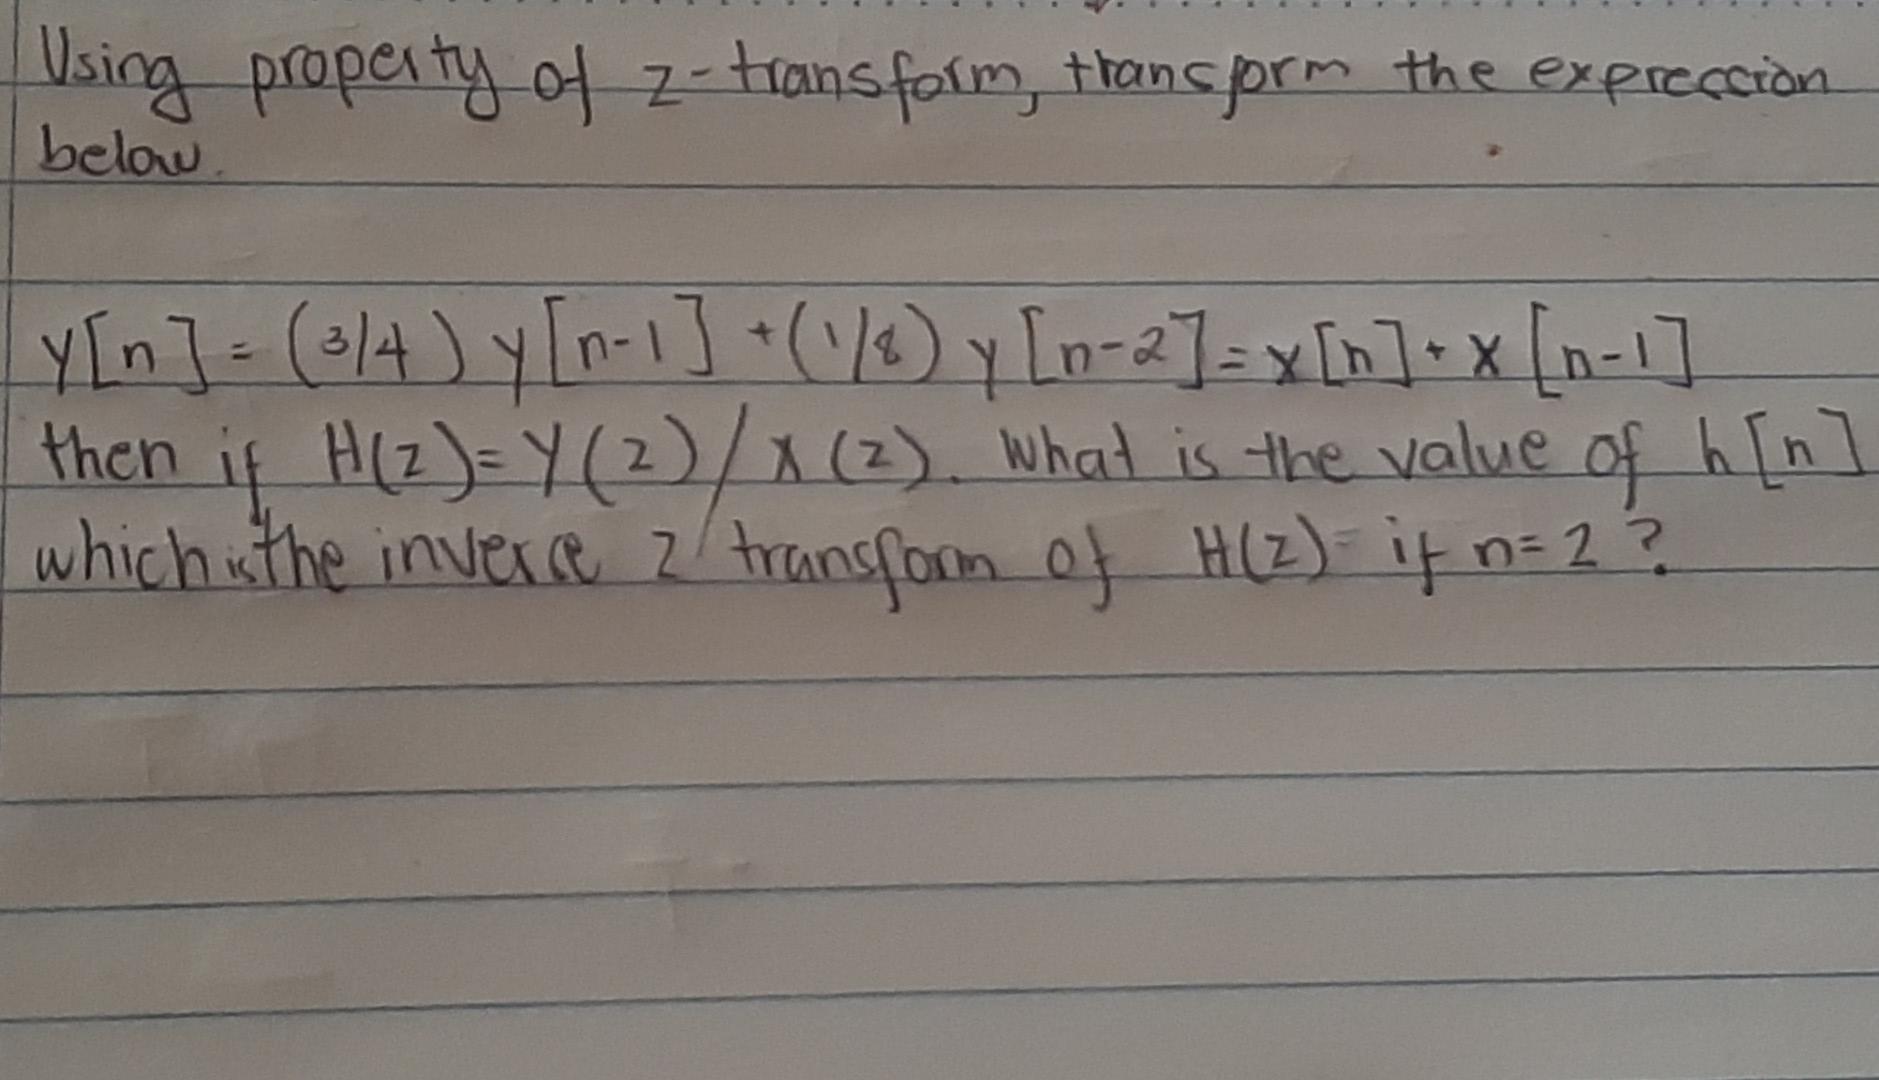 Using property of z-transform, transform the expression
below.
y[n] = (3/4) y[n-1] + (1/8) y [n-2] = x[n] + x [n-1]
then if H(z) = Y(z)/X(z). What is the value of h[n]
which is the inverse z transform of H(z) = if n = 2 ?